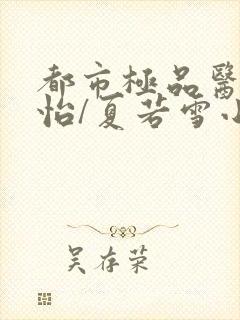 都市極品醫
怡/夏若雪小
吴存荣